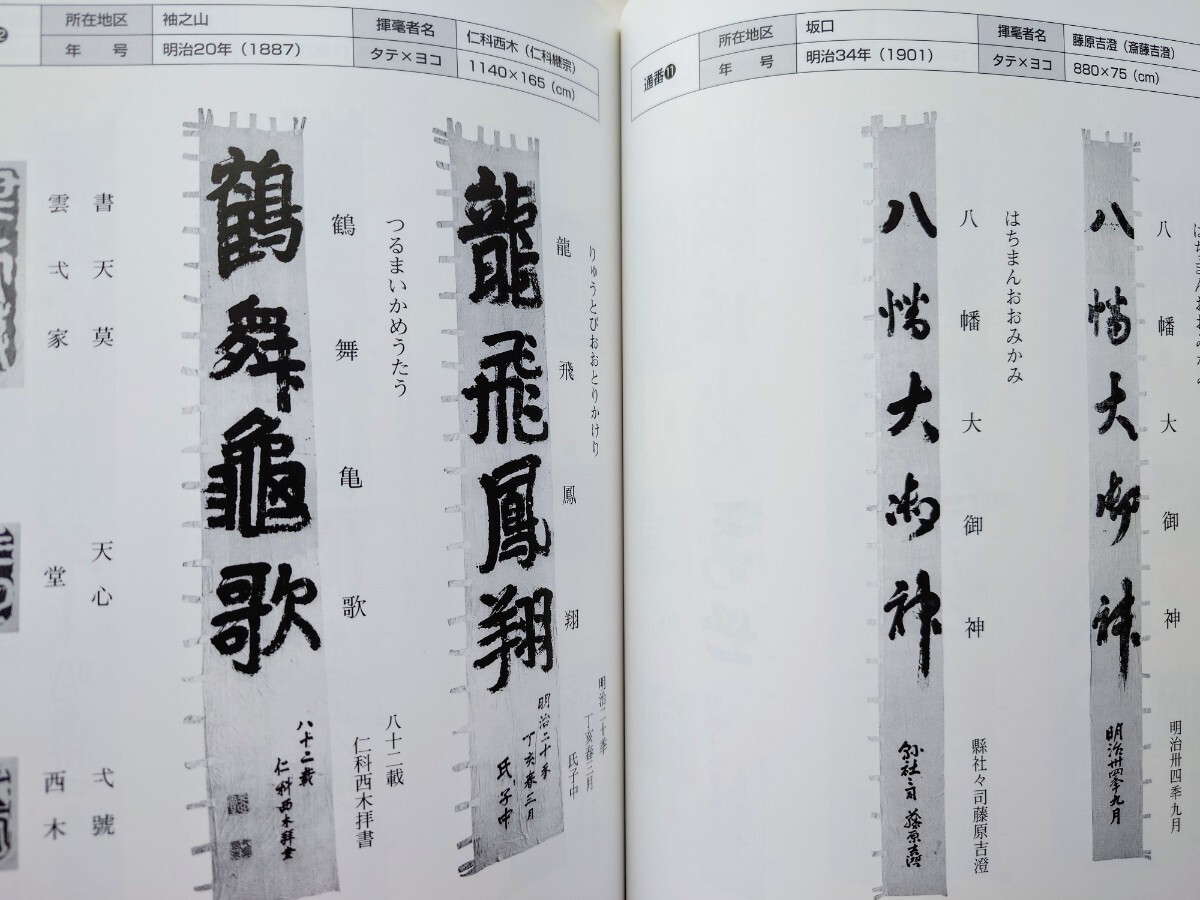 通番⓫
所在地区 坂口 揮毫者名 藤原吉澄（斎藤吉澄）
年号 明治34年（1901） タテ×ヨコ 880×75（cm）
八幡大御神
八幡大御神
明治卅四季九月
明治卅四季九月
はちまんおおみかみ
八幡大御神
縣社々司藤原吉澄
八幡大御神
縣社々司藤原吉澄
所在地区 袖之山 揮毫者名 仁科西木（仁科継宗）
年号 明治20年（1887） タテ×ヨコ 1140×165（cm）
りゅうとびおおとりかけり
龍飛鳳翔
明治二十季
丁亥春三月
氏子中
龍飛鳳翔
明治二十季
丁亥春三月
氏子中
つるまいかめうたう
鶴舞亀歌
八十二載
仁科西木拝書
鶴舞龜歌
八十二載
仁科西木拝書
書天莫
雲弌家
天心
堂
弌號
西木